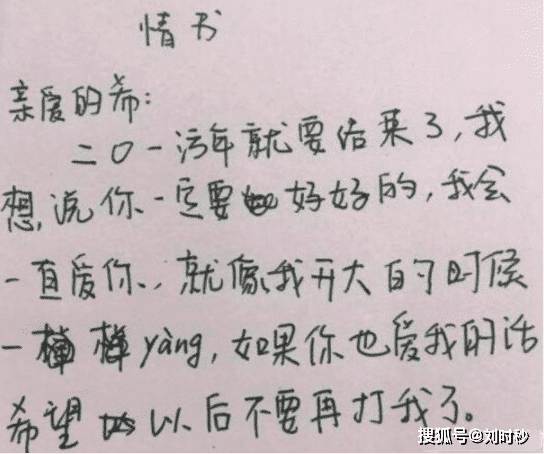 情书
亲爱的希:
二〇一年就要结束了,我
想,说你一定要好好的,我会
一直爱你,就像我开大的时候
一yàng,如果你也爱我的话
希望以后不要再打我了。
搜狐号@刘时秒